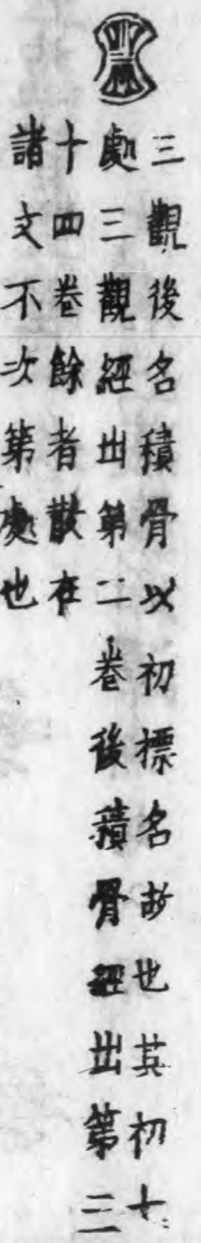 三觀後名積骨以初標名故也其初十
處三觀經出第二卷後積骨經出第三
十四卷餘者散在
諸文不次第處也